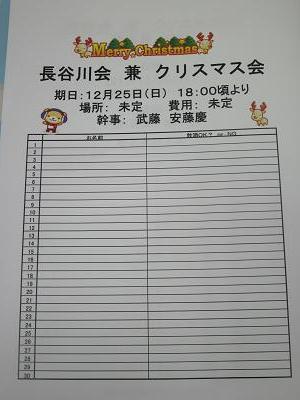 Merry Christmas
長谷川会 兼 クリスマス会
期日：12月25日(日) 18：00頃より
場所： 未定 費用： 未定
幹事： 武藤 安藤慶
お名前 飲酒OK？ or NG
1
2
3
4
5
6
7
8
9
10
11
12
13
14
15
16
17
18
19
20
21
22
23
24
25
26
27
28
29
30